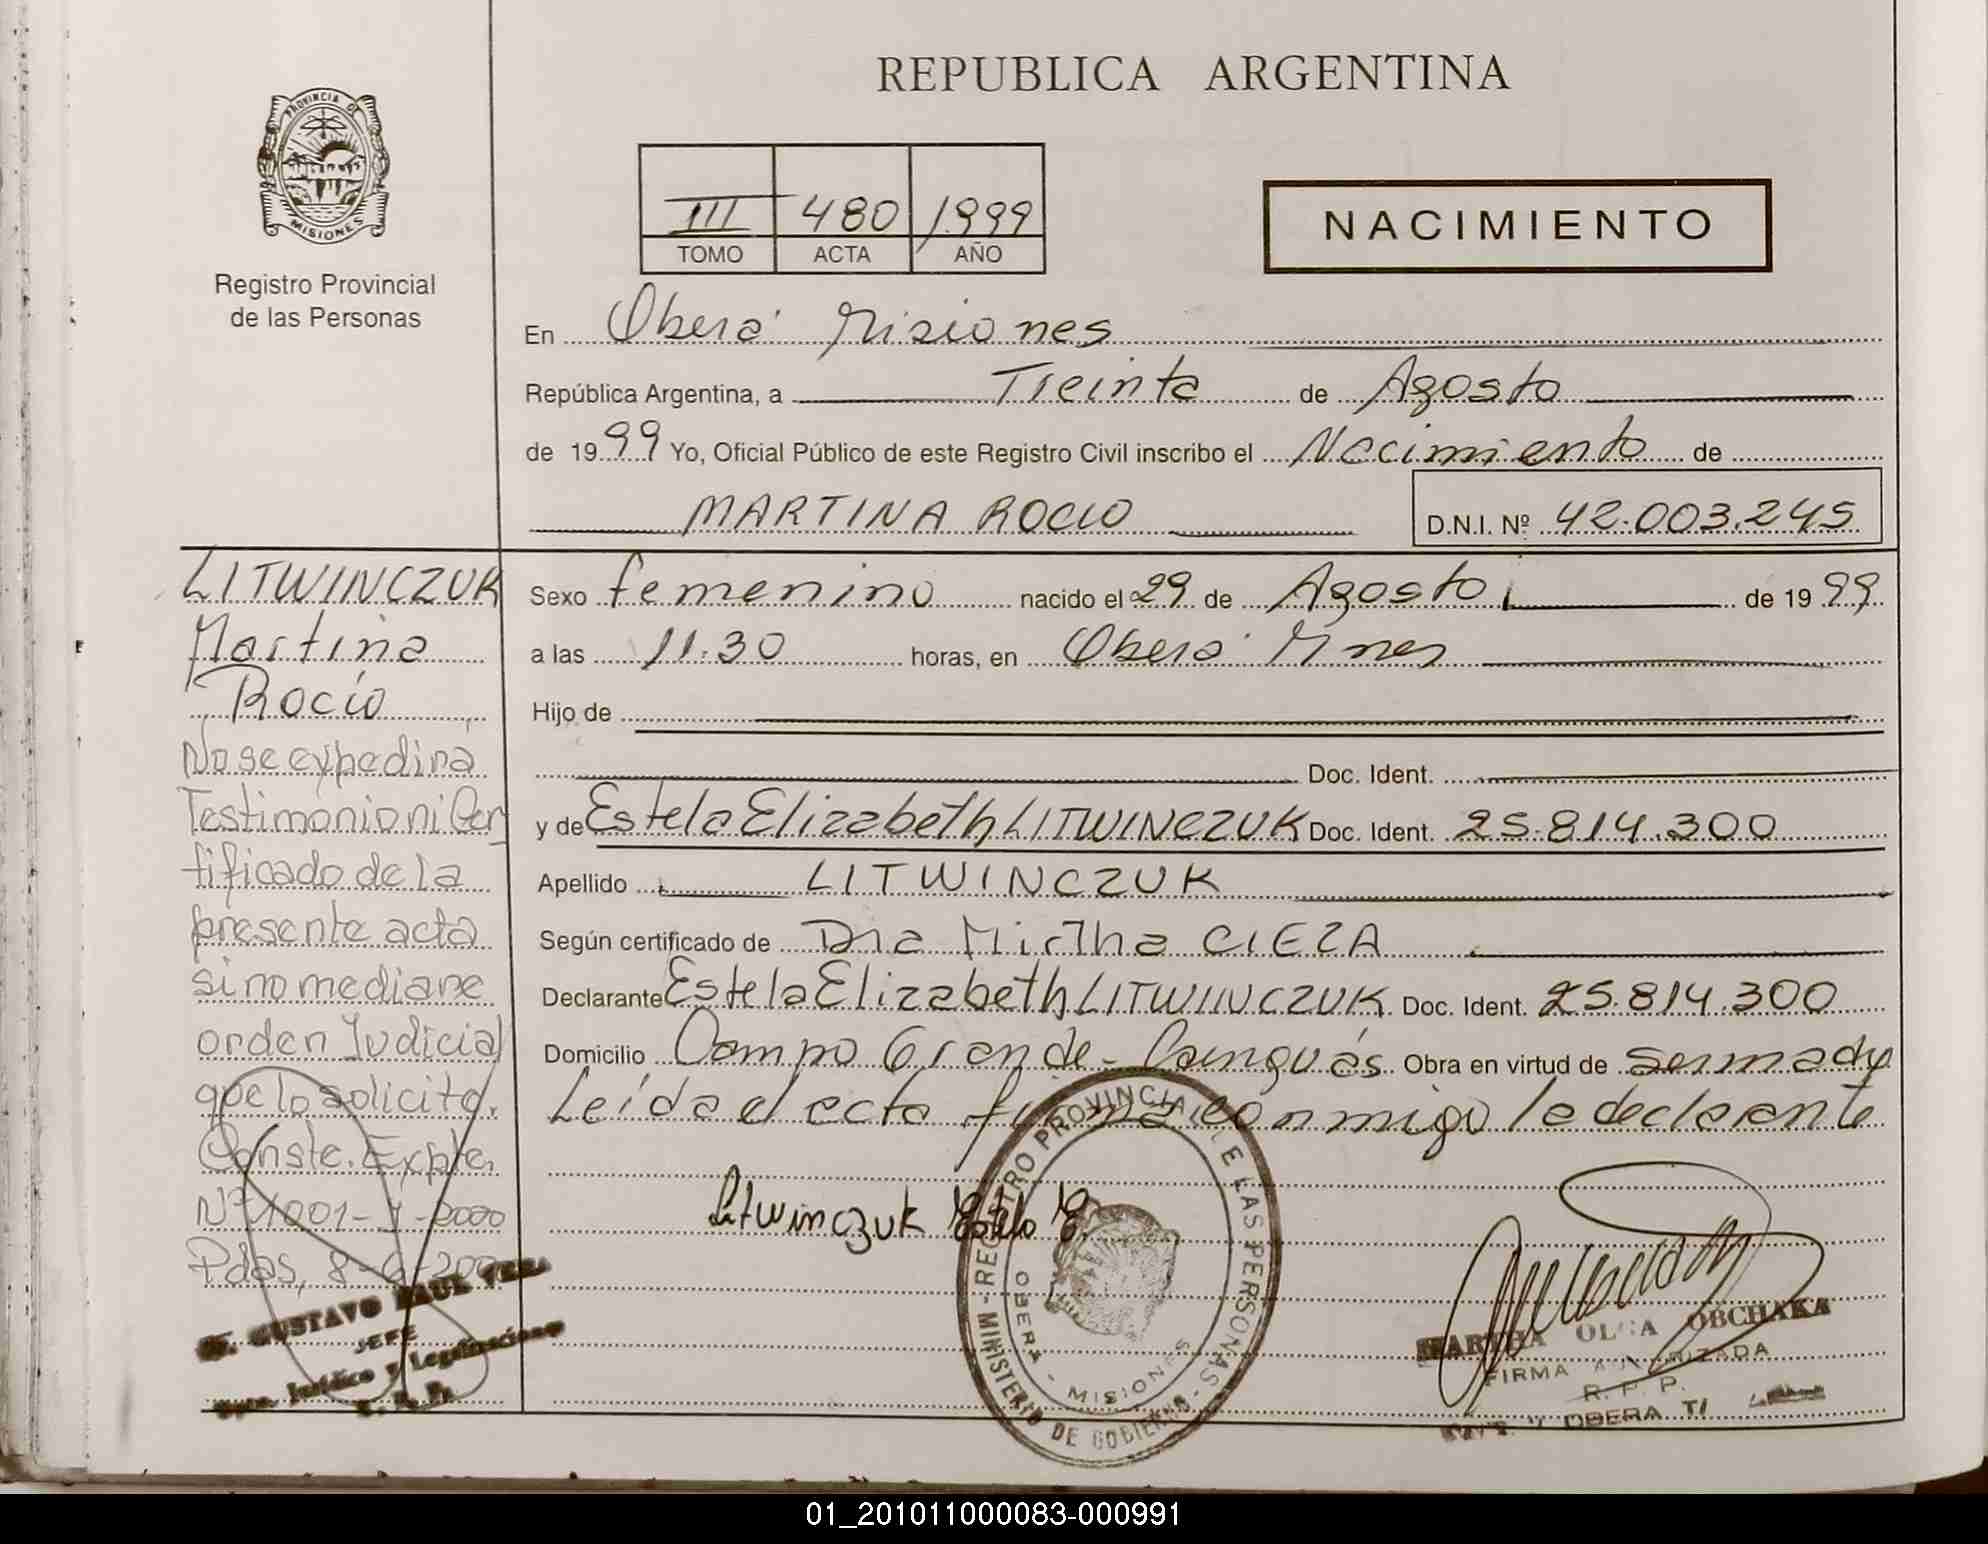 REPUBLICA ARGENTINA
PROVINCIA DE
MISIONES
Registro Provincial
de las Personas
III 480 1999
TOMO ACTA AÑO
NACIMIENTO
En Oberá Misiones
República Argentina, a Treinta de Agosto
de 1999 Yo, Oficial Público de este Registro Civil inscribo el Nacimiento de
MARTINA ROCIO D.N.I. Nº 42.003.245
Sexo femenino nacido el 29 de Agosto de 1999
a las 11.30 horas, en Oberá Mnes
Hijo de
Doc. Ident.
y de Estela Elizabeth LITWINCZUK Doc. Ident. 25.814.300
Apellido LITWINCZUK
Según certificado de Dra Mirtha CIEZA
Declarante Estela Elizabeth LITWINCZUK Doc. Ident. 25.814.300
Domicilio Campo Grande - Cainguás Obra en virtud de ser madre
Leída el acta firma conmigo la declarante
Litwinczuk Estela E.
REGISTRO PROVINCIAL DE LAS PERSONAS - MINISTERIO DE GOBIERNO -
OBERA - MISIONES
MARTHA OLGA OBCHAKA
FIRMA AUTORIZADA
R. P. P.
OBERA
LITWINCZUK
Martina
Rocío
No se expedirá
Testimonio ni Cer
tificado de la
presente acta
sino mediane
orden Judicial
que lo solicite.
Conste. Expte.
Nº 1001-
Pdas, 8-6-200
GUSTAVO RAUL VERA
JEFE
Jurídico y Legalizaciones
01_201011000083-000991